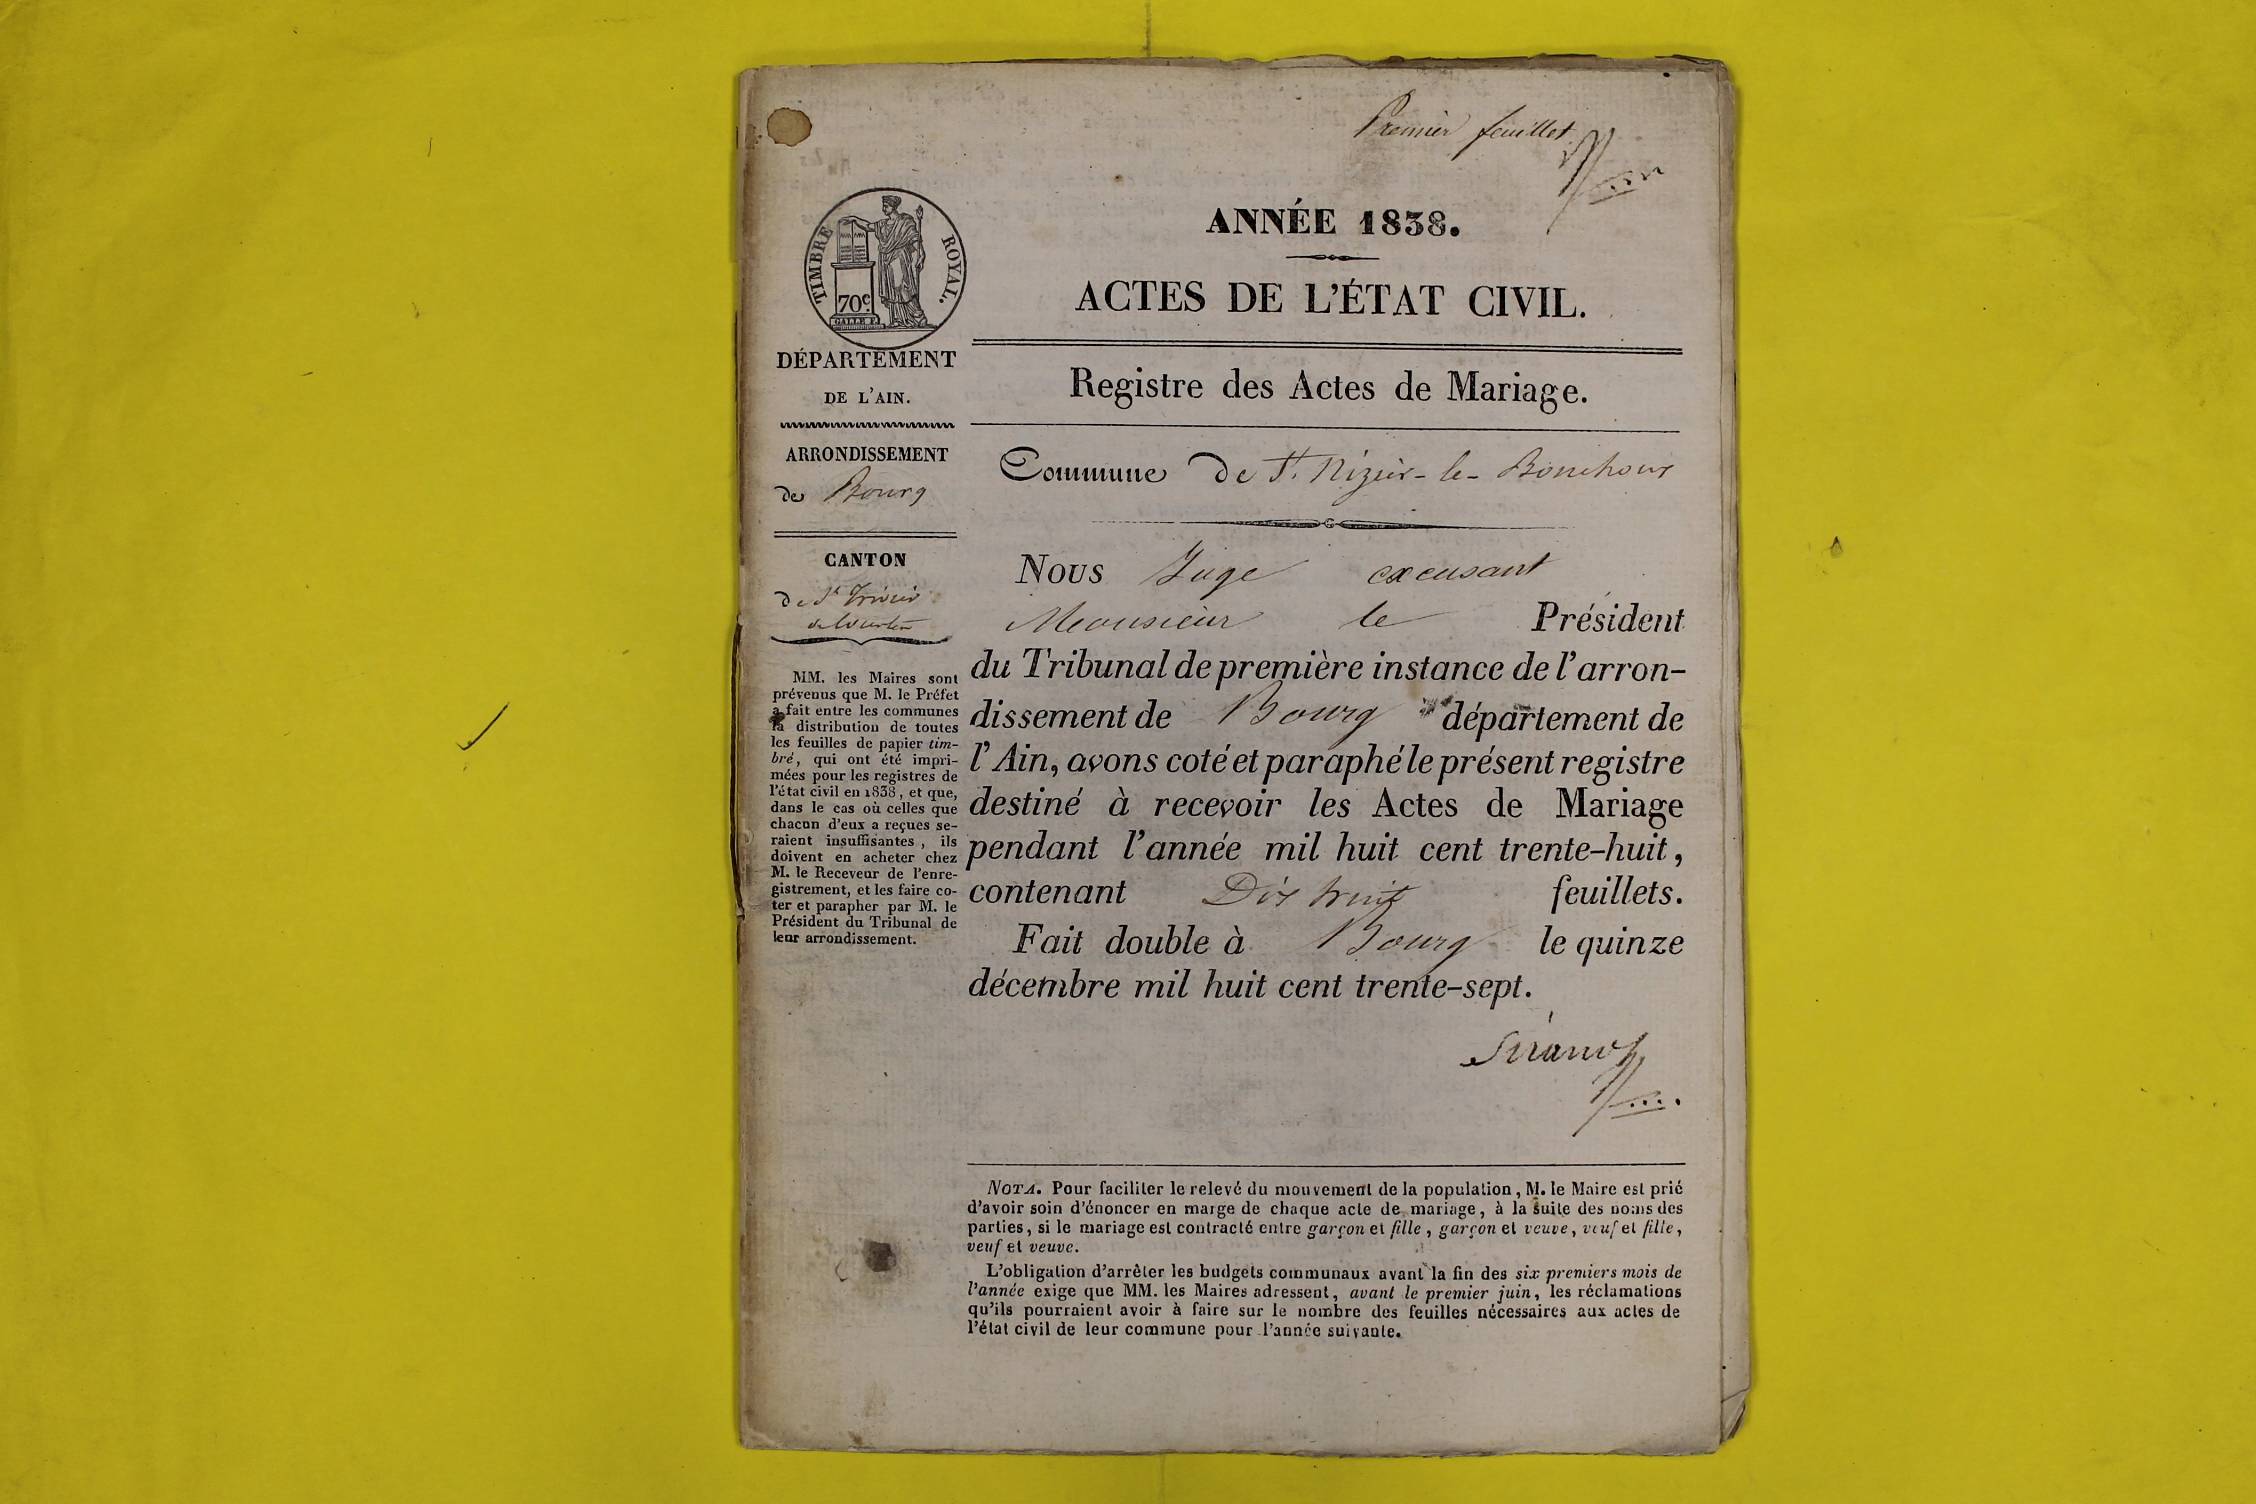 Premier feuillet
TIMBRE ROYAL.
70c.
ANNÉE 1838.
ACTES DE L'ÉTAT CIVIL.
DÉPARTEMENT
DE L'AIN.
ARRONDISSEMENT
de Bourg
CANTON
de St Trivier
de Courtes
MM. les Maires sont
prévenus que M. le Préfet
a fait entre les communes
la distribution de toutes
les feuilles de papier tim-
bré, qui ont été impri-
mées pour les registres de
l'état civil en 1838, et que,
dans le cas où celles que
chacun d'eux a reçues se-
raient insuffisantes, ils
doivent en acheter chez
M. le Receveur de l'enre-
gistrement, et les faire co-
ter et parapher par M. le
Président du Tribunal de
leur arrondissement.
Registre des Actes de Mariage.
Commune de St. Nizier-le-Bouchoux
Nous Juge excusant
Monsieur le Président
du Tribunal de première instance de l'arron-
dissement de Bourg département de
l'Ain, avons coté et paraphé le présent registre
destiné à recevoir les Actes de Mariage
pendant l'année mil huit cent trente-huit,
contenant Dix huit feuillets.
Fait double à Bourg le quinze
décembre mil huit cent trente-sept.
NOTA. Pour faciliter le relevé du mouvement de la population, M. le Maire est prié
d'avoir soin d'énoncer en marge de chaque acte de mariage, à la suite des noms des
parties, si le mariage est contracté entre garçon et fille, garçon et veuve, veuf et fille,
veuf et veuve.
L'obligation d'arrêter les budgets communaux avant la fin des six premiers mois de
l'année exige que MM. les Maires adressent, avant le premier juin, les réclamations
qu'ils pourraient avoir à faire sur le nombre des feuilles nécessaires aux actes de
l'état civil de leur commune pour l'année suivante.